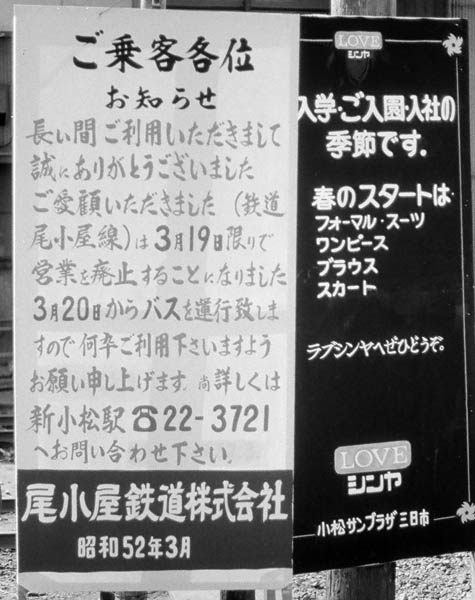 ご乗客各位
お知らせ
長い間ご利用いただきまして
誠にありがとうございました
ご愛顧いただきました(鉄道
尾小屋線)は3月19日限りで
営業を廃止することになりました
3月20日からバスを運行致しま
すので何卒ご利用下さいますよう
お願い申し上げます。尚詳しくは
新小松駅☎22-3721
へお問い合わせ下さい。
尾小屋鉄道株式会社
昭和52年3月
LOVE
シンヤ
入学・ご入園・入社の
季節です。
春のスタートは
フォーマル・スーツ
ワンピース
ブラウス
スカート
ラブシンヤへぜひどうぞ。
LOVE
シンヤ
小松サンプラザ三日市